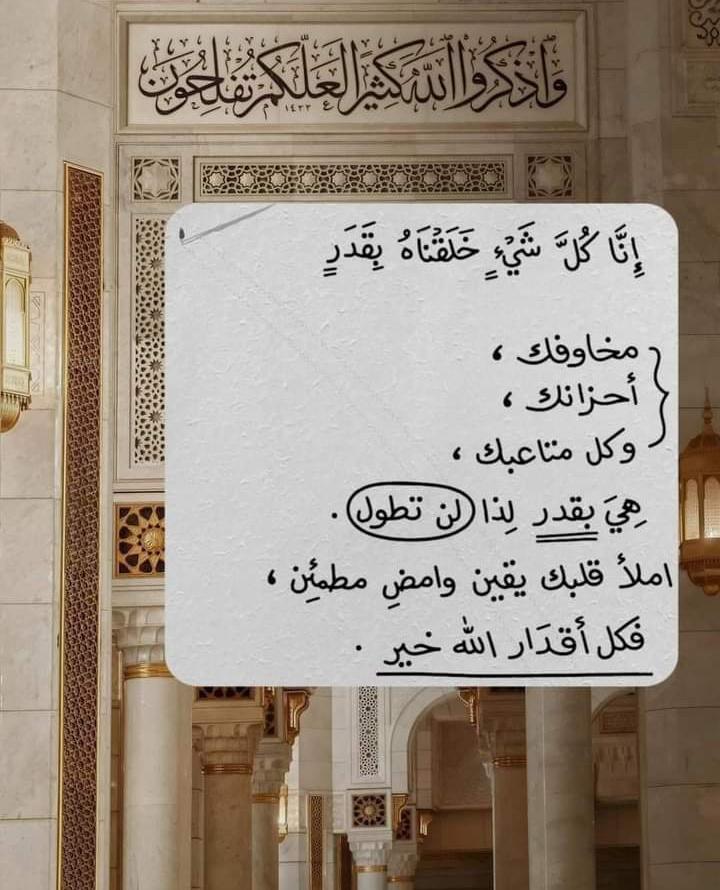 وَاذْكُرُوا اللَّهَ كَثِيرًا لَعَلَّكُمْ تُفْلِحُونَ
١٤٣٣
إِنَّا كُلَّ شَيْءٍ خَلَقْنَاهُ بِقَدَرٍ
مخاوفك ،
أحزانك ،
وكل متاعبك ،
هِيَ بقدر لِذا لن تطول .
املأ قلبك يقين وامضِ مطمئِن ،
فكل أقدَار الله خير .